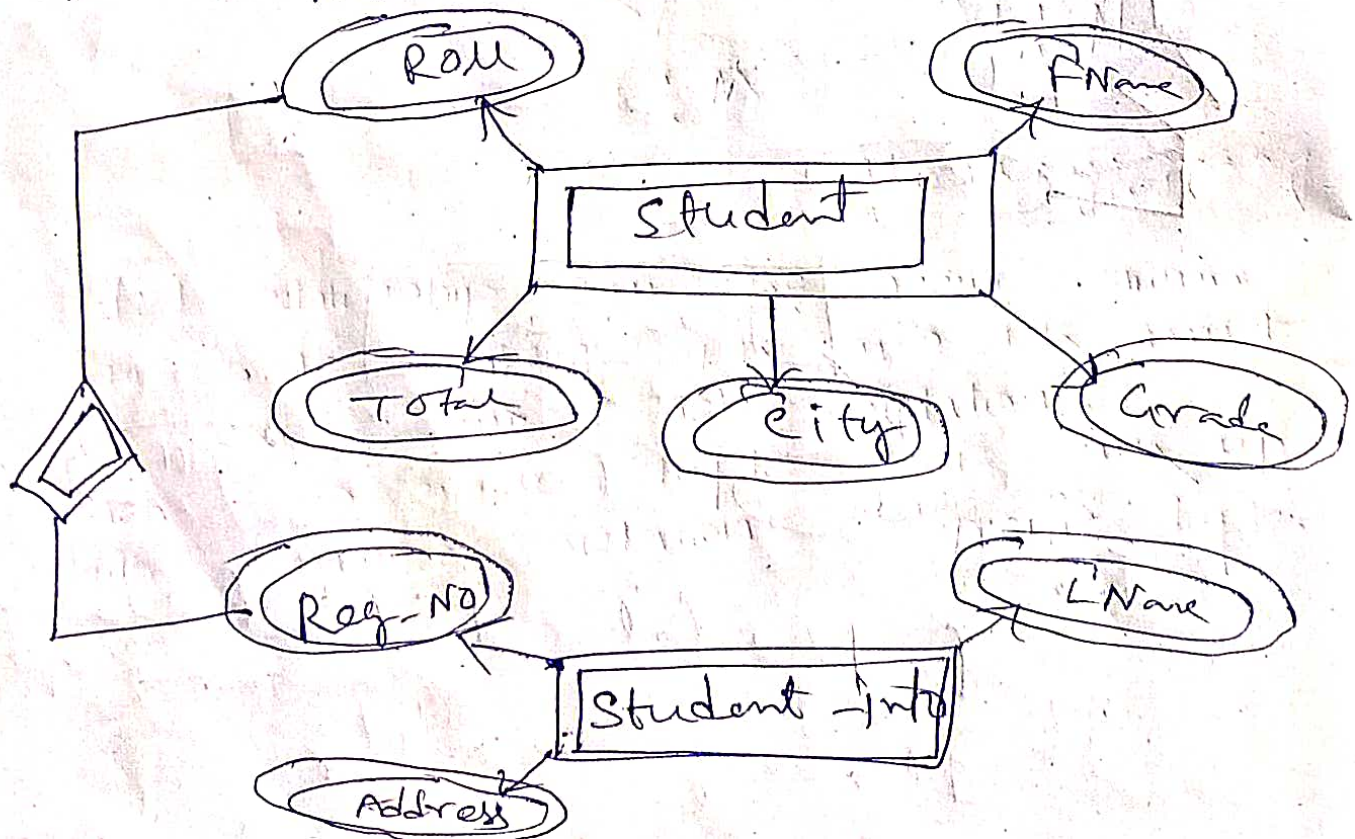 Roll
FName
Student
Total
City
Grade
Reg_No
LName
Student_info
Address